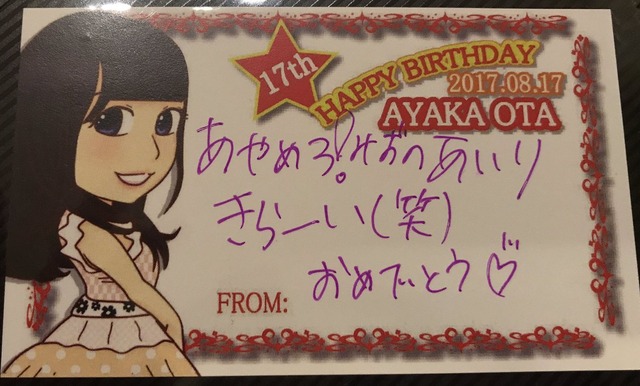 17th
HAPPY BIRTHDAY
2017.08.17
AYAKA OTA
あやめろ!みおつあいり
きらーい(笑)
おめでとう♡
FROM: